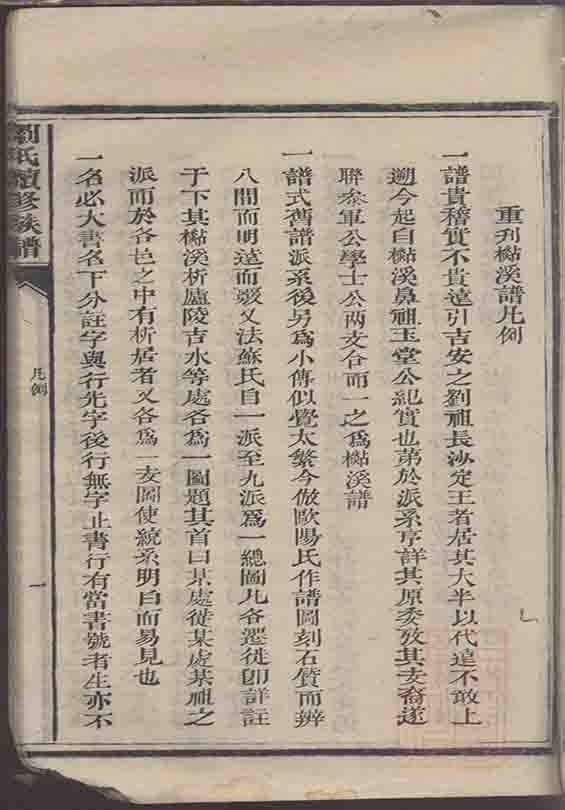 重刊櫾溪譜凡例
一譜貴稽實不貴遠引吉安之劉祖長沙定王者居其大半以代遠不敢上
遡今起自櫾溪鼻祖玉堂公紀實也第於派系序詳其原委攷其支裔遂
聯叅軍公學士公两支合而一之爲櫾溪譜
一譜式舊譜派系後另爲小傳似覺太繁今倣歐陽氏作譜圖刻石質而辨
八閒而明遠而彂又法蘇氏自一派至九派爲一總圖凡各遷徙卽詳註
于下其櫾溪析廬陵吉水等處各爲一圖題其首曰某處從某處某祖之
派而於各邑之中有析居者又各爲一支圖使統系明白而易見也
一名必大書名下分註字與行先字後行無字止書行有當書號者生亦不
劉氏續修族譜
凡例
一